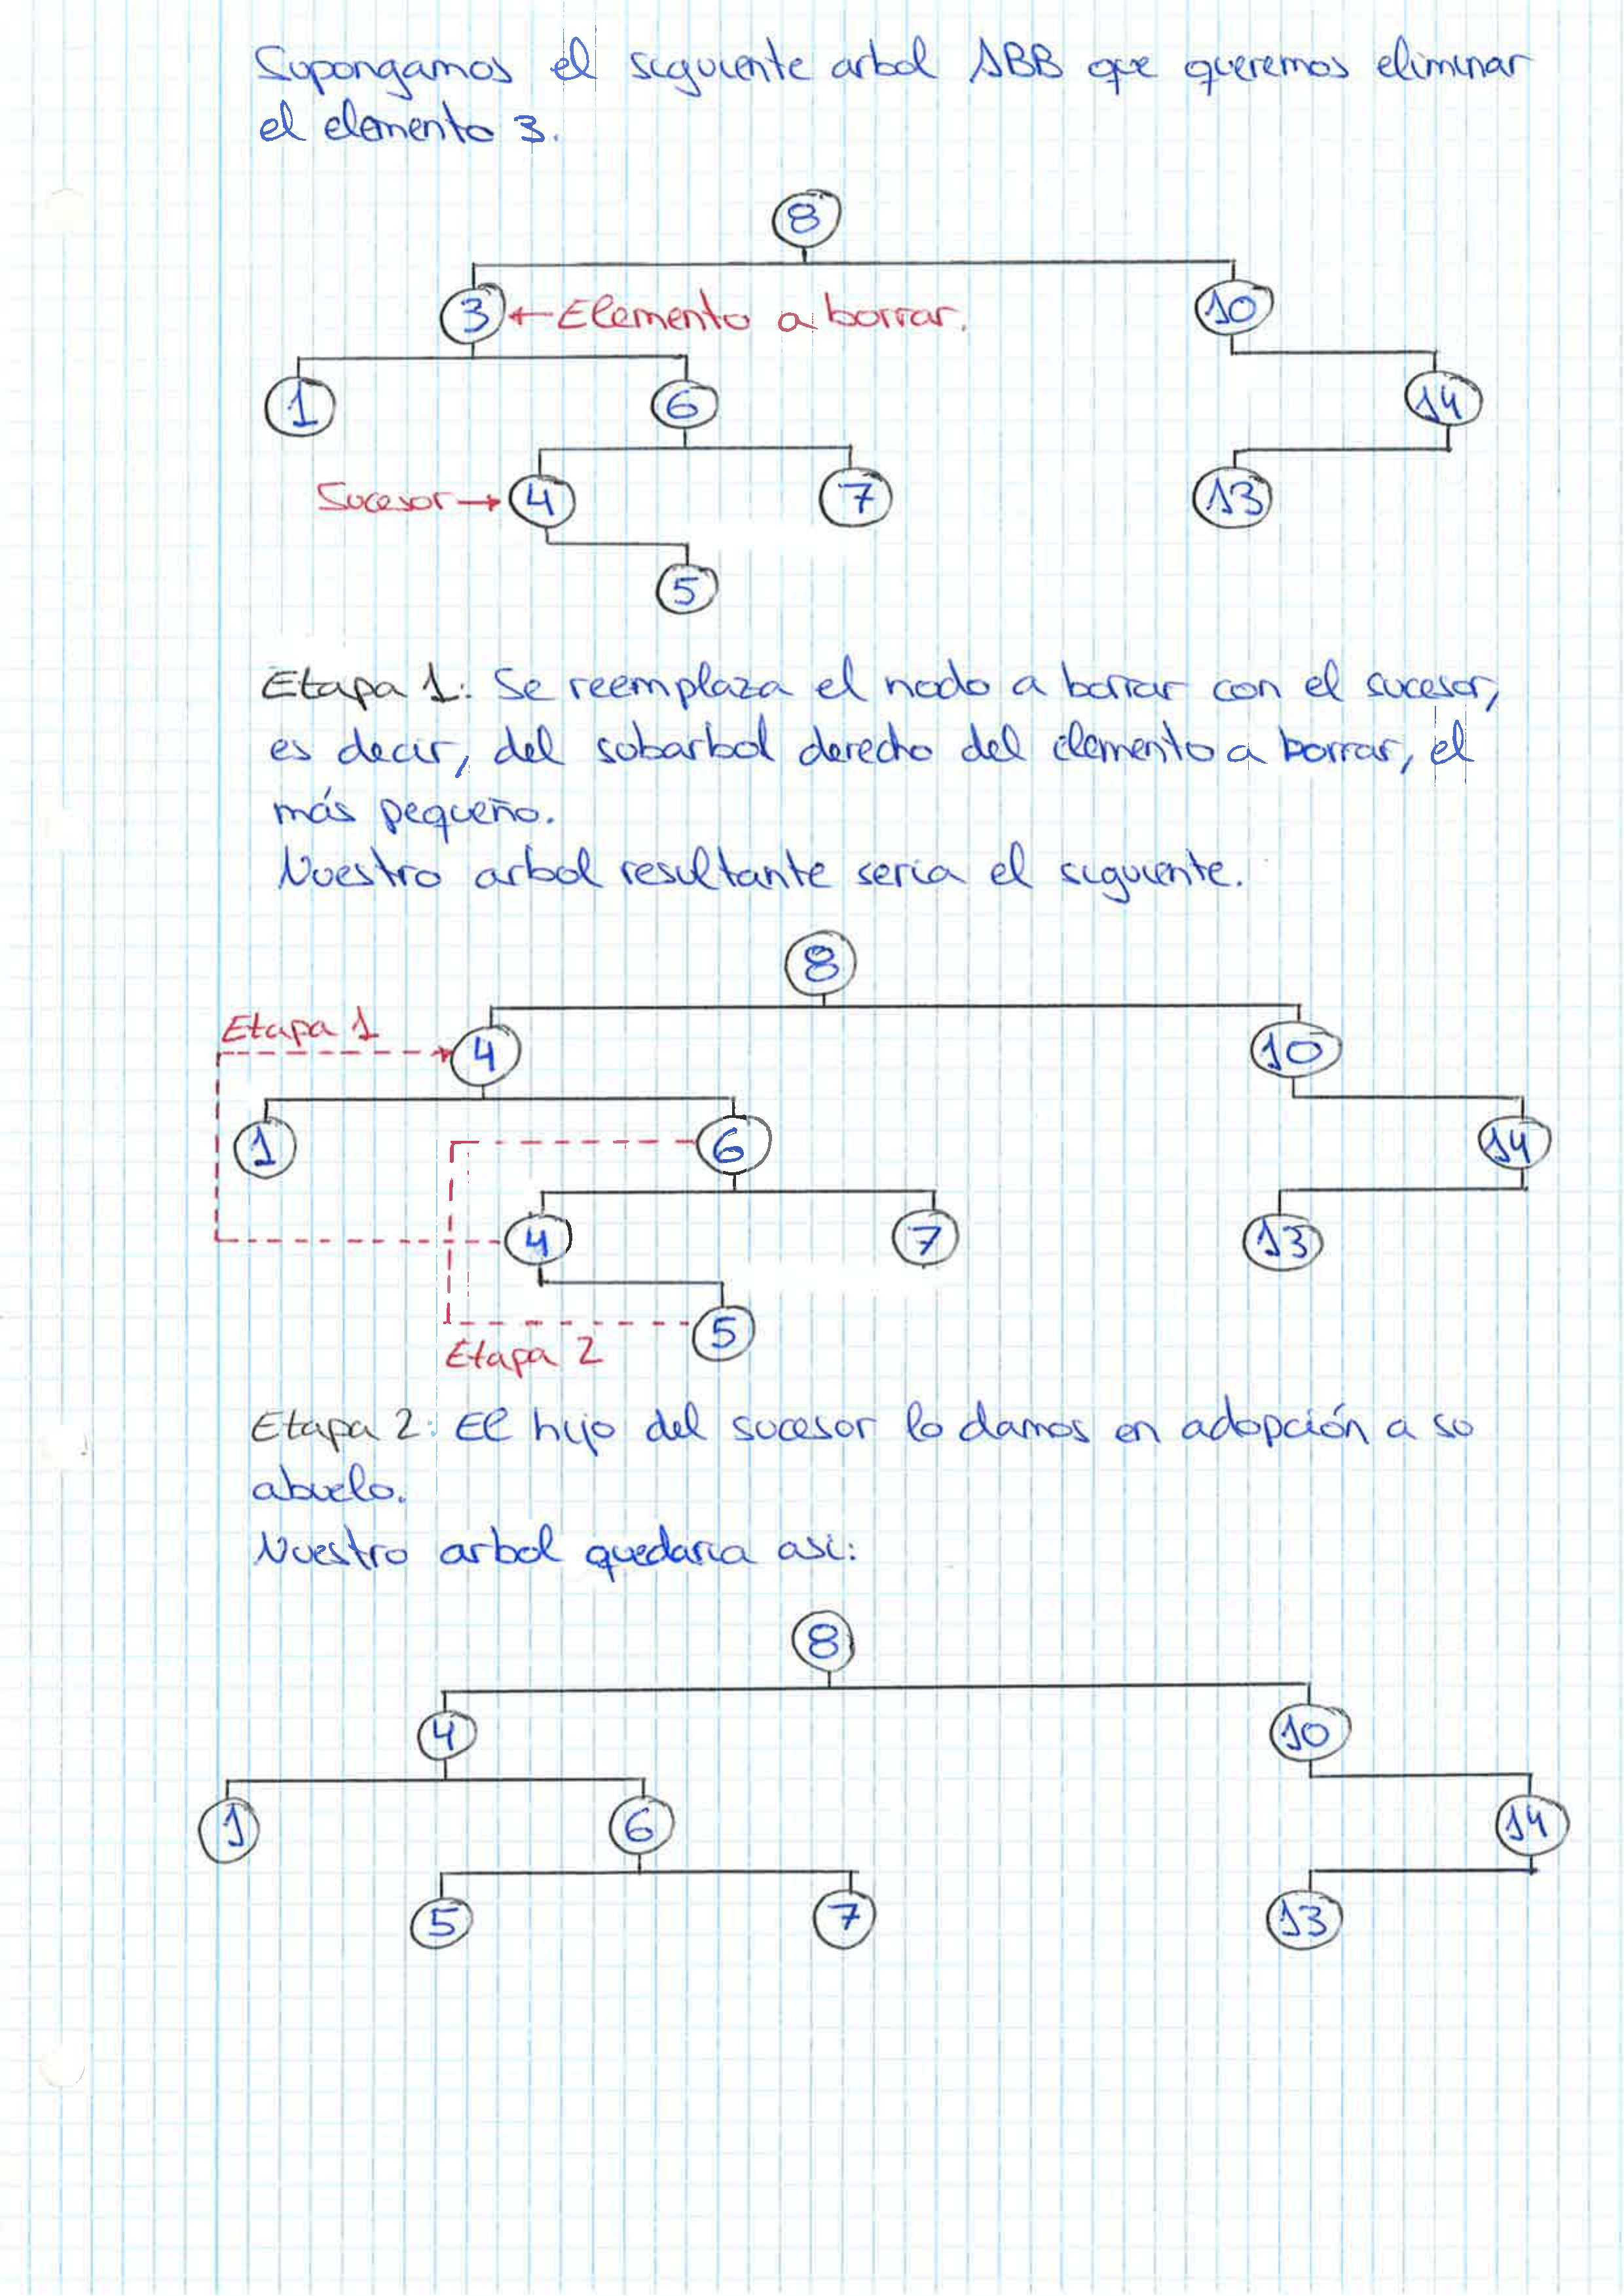 Supongamos el siguiente arbol ABB que queremos eliminar
el elemento 3.
8
3 ← Elemento a borrar. 10
1 6 14
Sucesor → 4 7 13
5
Etapa 1: Se reemplaza el nodo a borrar con el sucesor,
es decir, del subarbol derecho del elemento a borrar, el
más pequeño.
Nuestro arbol resultante seria el siguiente.
8
Etapa 1
4 10
1 6 14
4 7 13
5
Etapa 2
Etapa 2: El hijo del sucesor lo damos en adopción a su
abuelo.
Nuestro arbol quedaria asi:
8
4 10
1 6 14
5 7 13